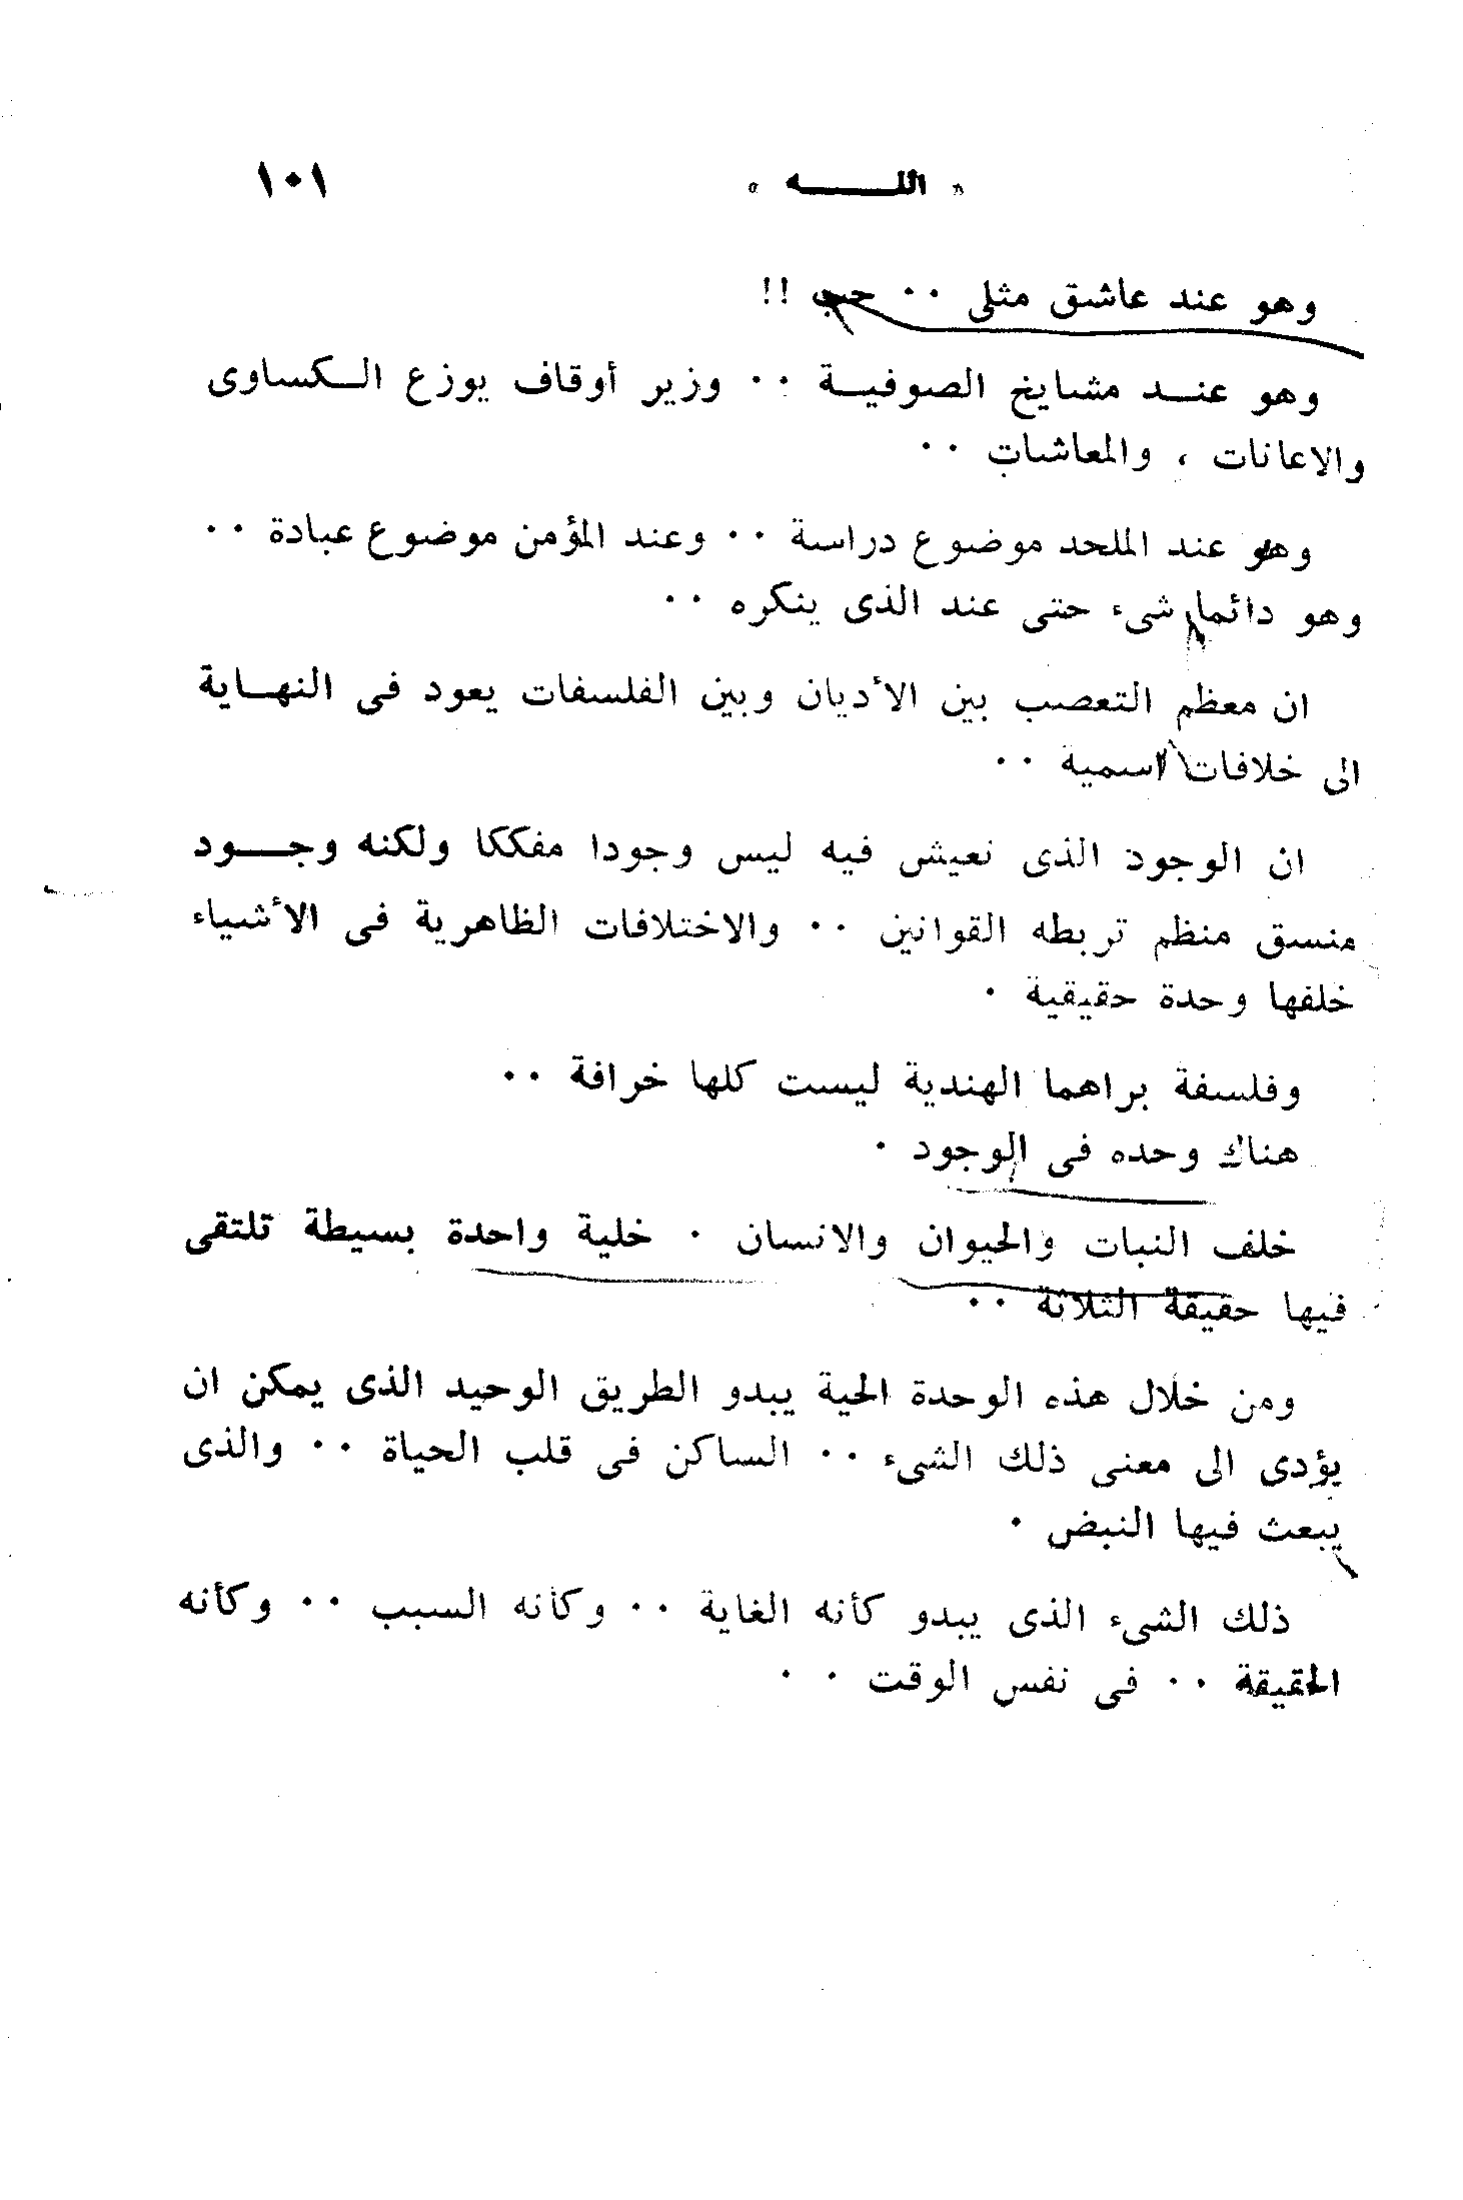 « اللـــــه » ١٠١
وهو عند عاشق مثلى ٠٠ حب !!
وهو عنـــد مشايخ الصوفيـــة ٠٠ وزير أوقاف يوزع الـكساوى
والاعانات ، والمعاشات ٠٠
وهو عند الملحد موضوع دراسة ٠٠ وعند المؤمن موضوع عبادة ٠٠
وهو دائما شىء حتى عند الذى ينكره ٠٠
ان معظم التعصب بين الأديان وبين الفلسفات يعود فى النهـاية
الى خلافات اسمية ٠٠
ان الوجود الذى نعيش فيه ليس وجودا مفككا ولكنه وجـــود
منسق منظم تربطه القوانين ٠٠ والاختلافات الظاهرية فى الأشياء
خلفها وحدة حقيقية ٠
وفلسفة براهما الهندية ليست كلها خرافة ٠٠
هناك وحده فى الوجود ٠
خلف النبات والحيوان والانسان ٠ خلية واحدة بسيطة تلتقى
فيها حقيقة الثلاثة ٠٠
ومن خلال هذه الوحدة الحية يبدو الطريق الوحيد الذى يمكن ان
يؤدى الى معنى ذلك الشىء ٠٠ الساكن فى قلب الحياة ٠٠ والذى
يبعث فيها النبض ٠
ذلك الشىء الذى يبدو كأنه الغاية ٠٠ وكأنه السبب ٠٠ وكأنه
الحقيقة ٠٠ فى نفس الوقت ٠ ٠